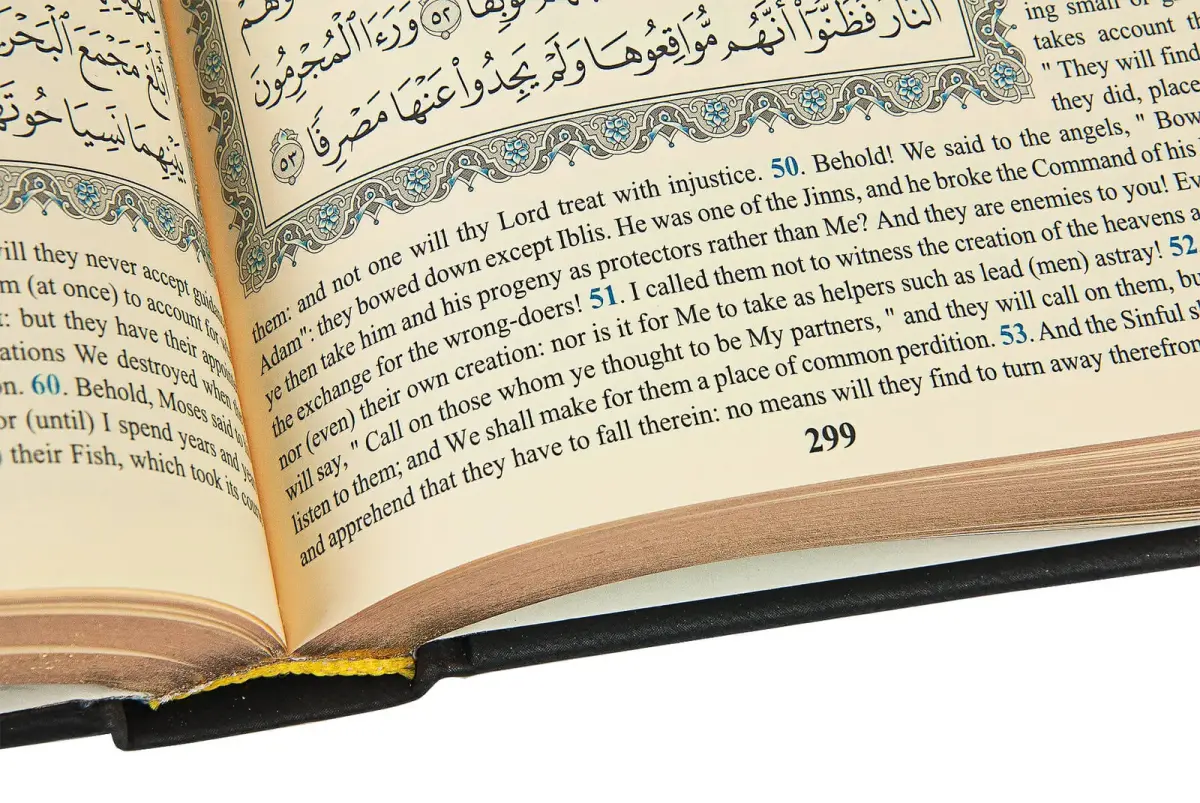 مَّوْبِقًا ٥٢ وَرَءَا ٱلْمُجْرِمُونَ
ٱلنَّارَ فَظَنُّوٓا۟ أَنَّهُم مُّوَاقِعُوهَا وَلَمْ يَجِدُوا۟ عَنْهَا مَصْرِفًا ٥٣
ing small or
takes account
" They will find
they did, place
them: and not one will thy Lord treat with injustice. 50. Behold! We said to the angels, " Bow
Adam": they bowed down except Iblis. He was one of the Jinns, and he broke the Command of his
ye then take him and his progeny as protectors rather than Me? And they are enemies to you!
the exchange for the wrong-doers! 51. I called them not to witness the creation of the heavens
nor (even) their own creation: nor is it for Me to take as helpers such as lead (men) astray! 52
will say, " Call on those whom ye thought to be My partners, " and they will call on them, but
listen to them; and We shall make for them a place of common perdition. 53. And the Sinful
and apprehend that they have to fall therein: no means will they find to turn away therefrom
299
أَبْلُغَ مَجْمَعَ ٱلْبَحْرَيْنِ
بَيْنِهِمَا نَسِيَا
will they never accept
(at once) to account for
: but they have their
ations We destroyed when
on. 60. Behold, Moses said to
or (until) I spend years and
their Fish, which took its